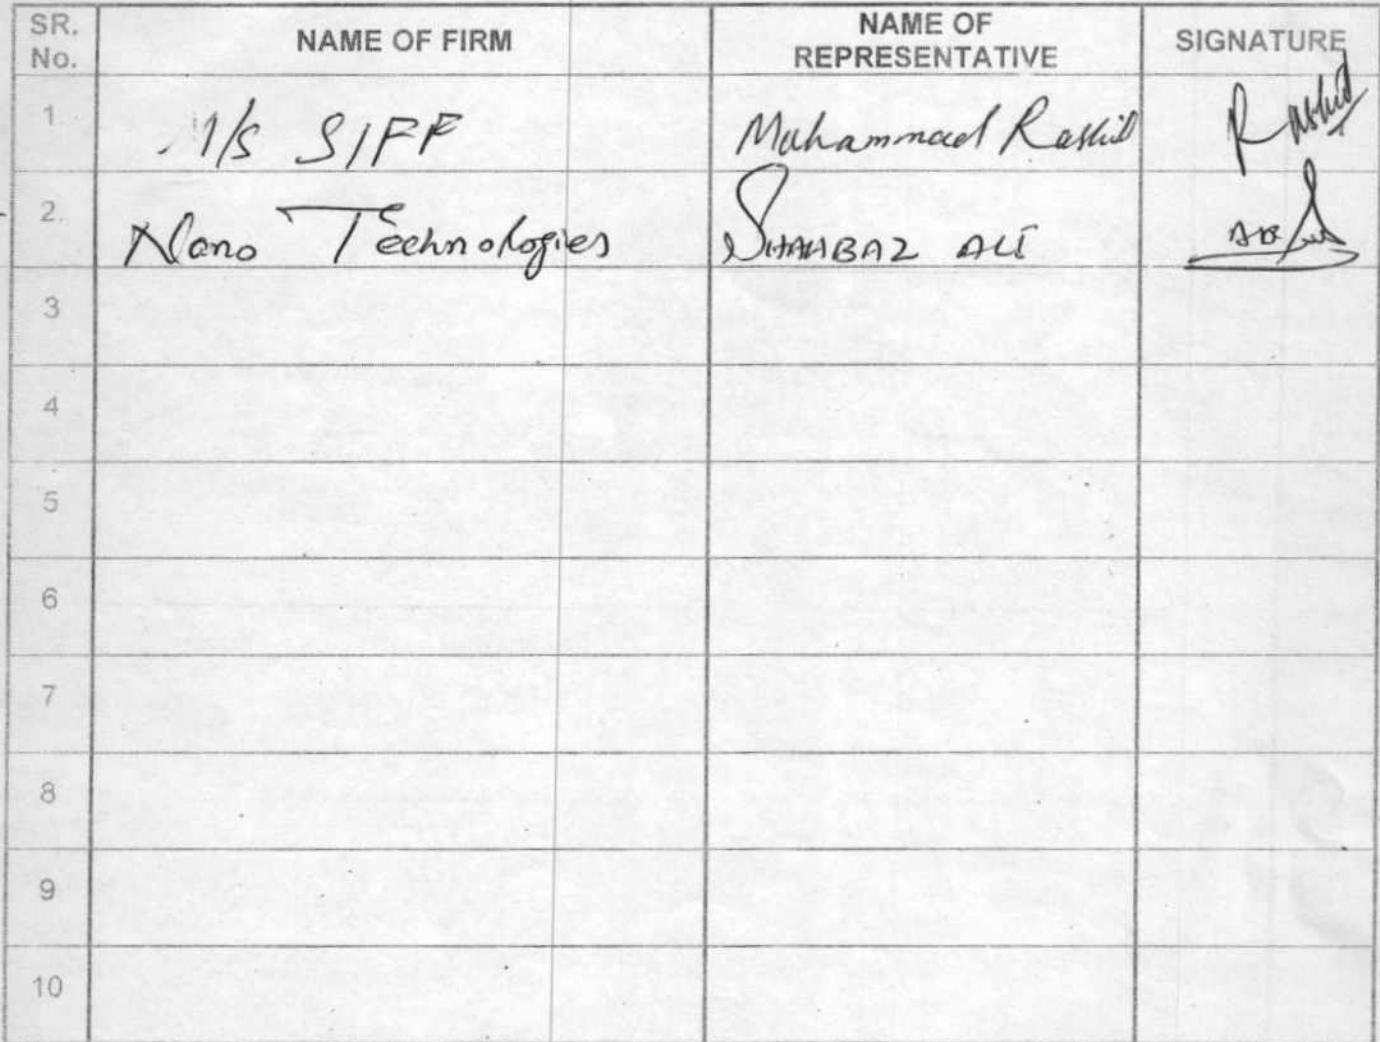 SR. No. NAME OF FIRM NAME OF REPRESENTATIVE SIGNATURE
1 M/s SIFF Muhammad Rashid Rashid
2. Nano Technologies SHAHBAZ ALI
3
4
5
6
7
8
9
10